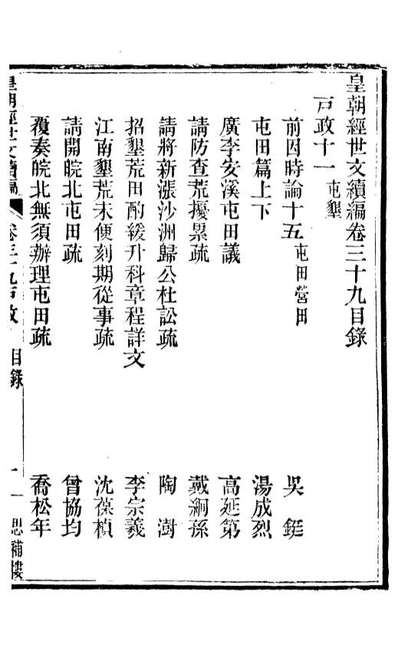 皇朝經世文續編卷三十九目錄
戶政十一 屯墾
前因時論十五 屯田營田 吳鋌
屯田篇上下 湯成烈
廣李安溪屯田議 高延第
請防查荒擾累疏 戴絅孫
請將新漲沙洲歸公杜訟疏 陶澍
招墾荒田酌緩升科章程詳文 李宗羲
江南墾荒未便刻期從事疏 沈葆楨
請開皖北屯田疏 曾協均
覆奏皖北無須辦理屯田疏 喬松年
皇朝經世文續編 卷三十九戶政 目錄 一 思補樓